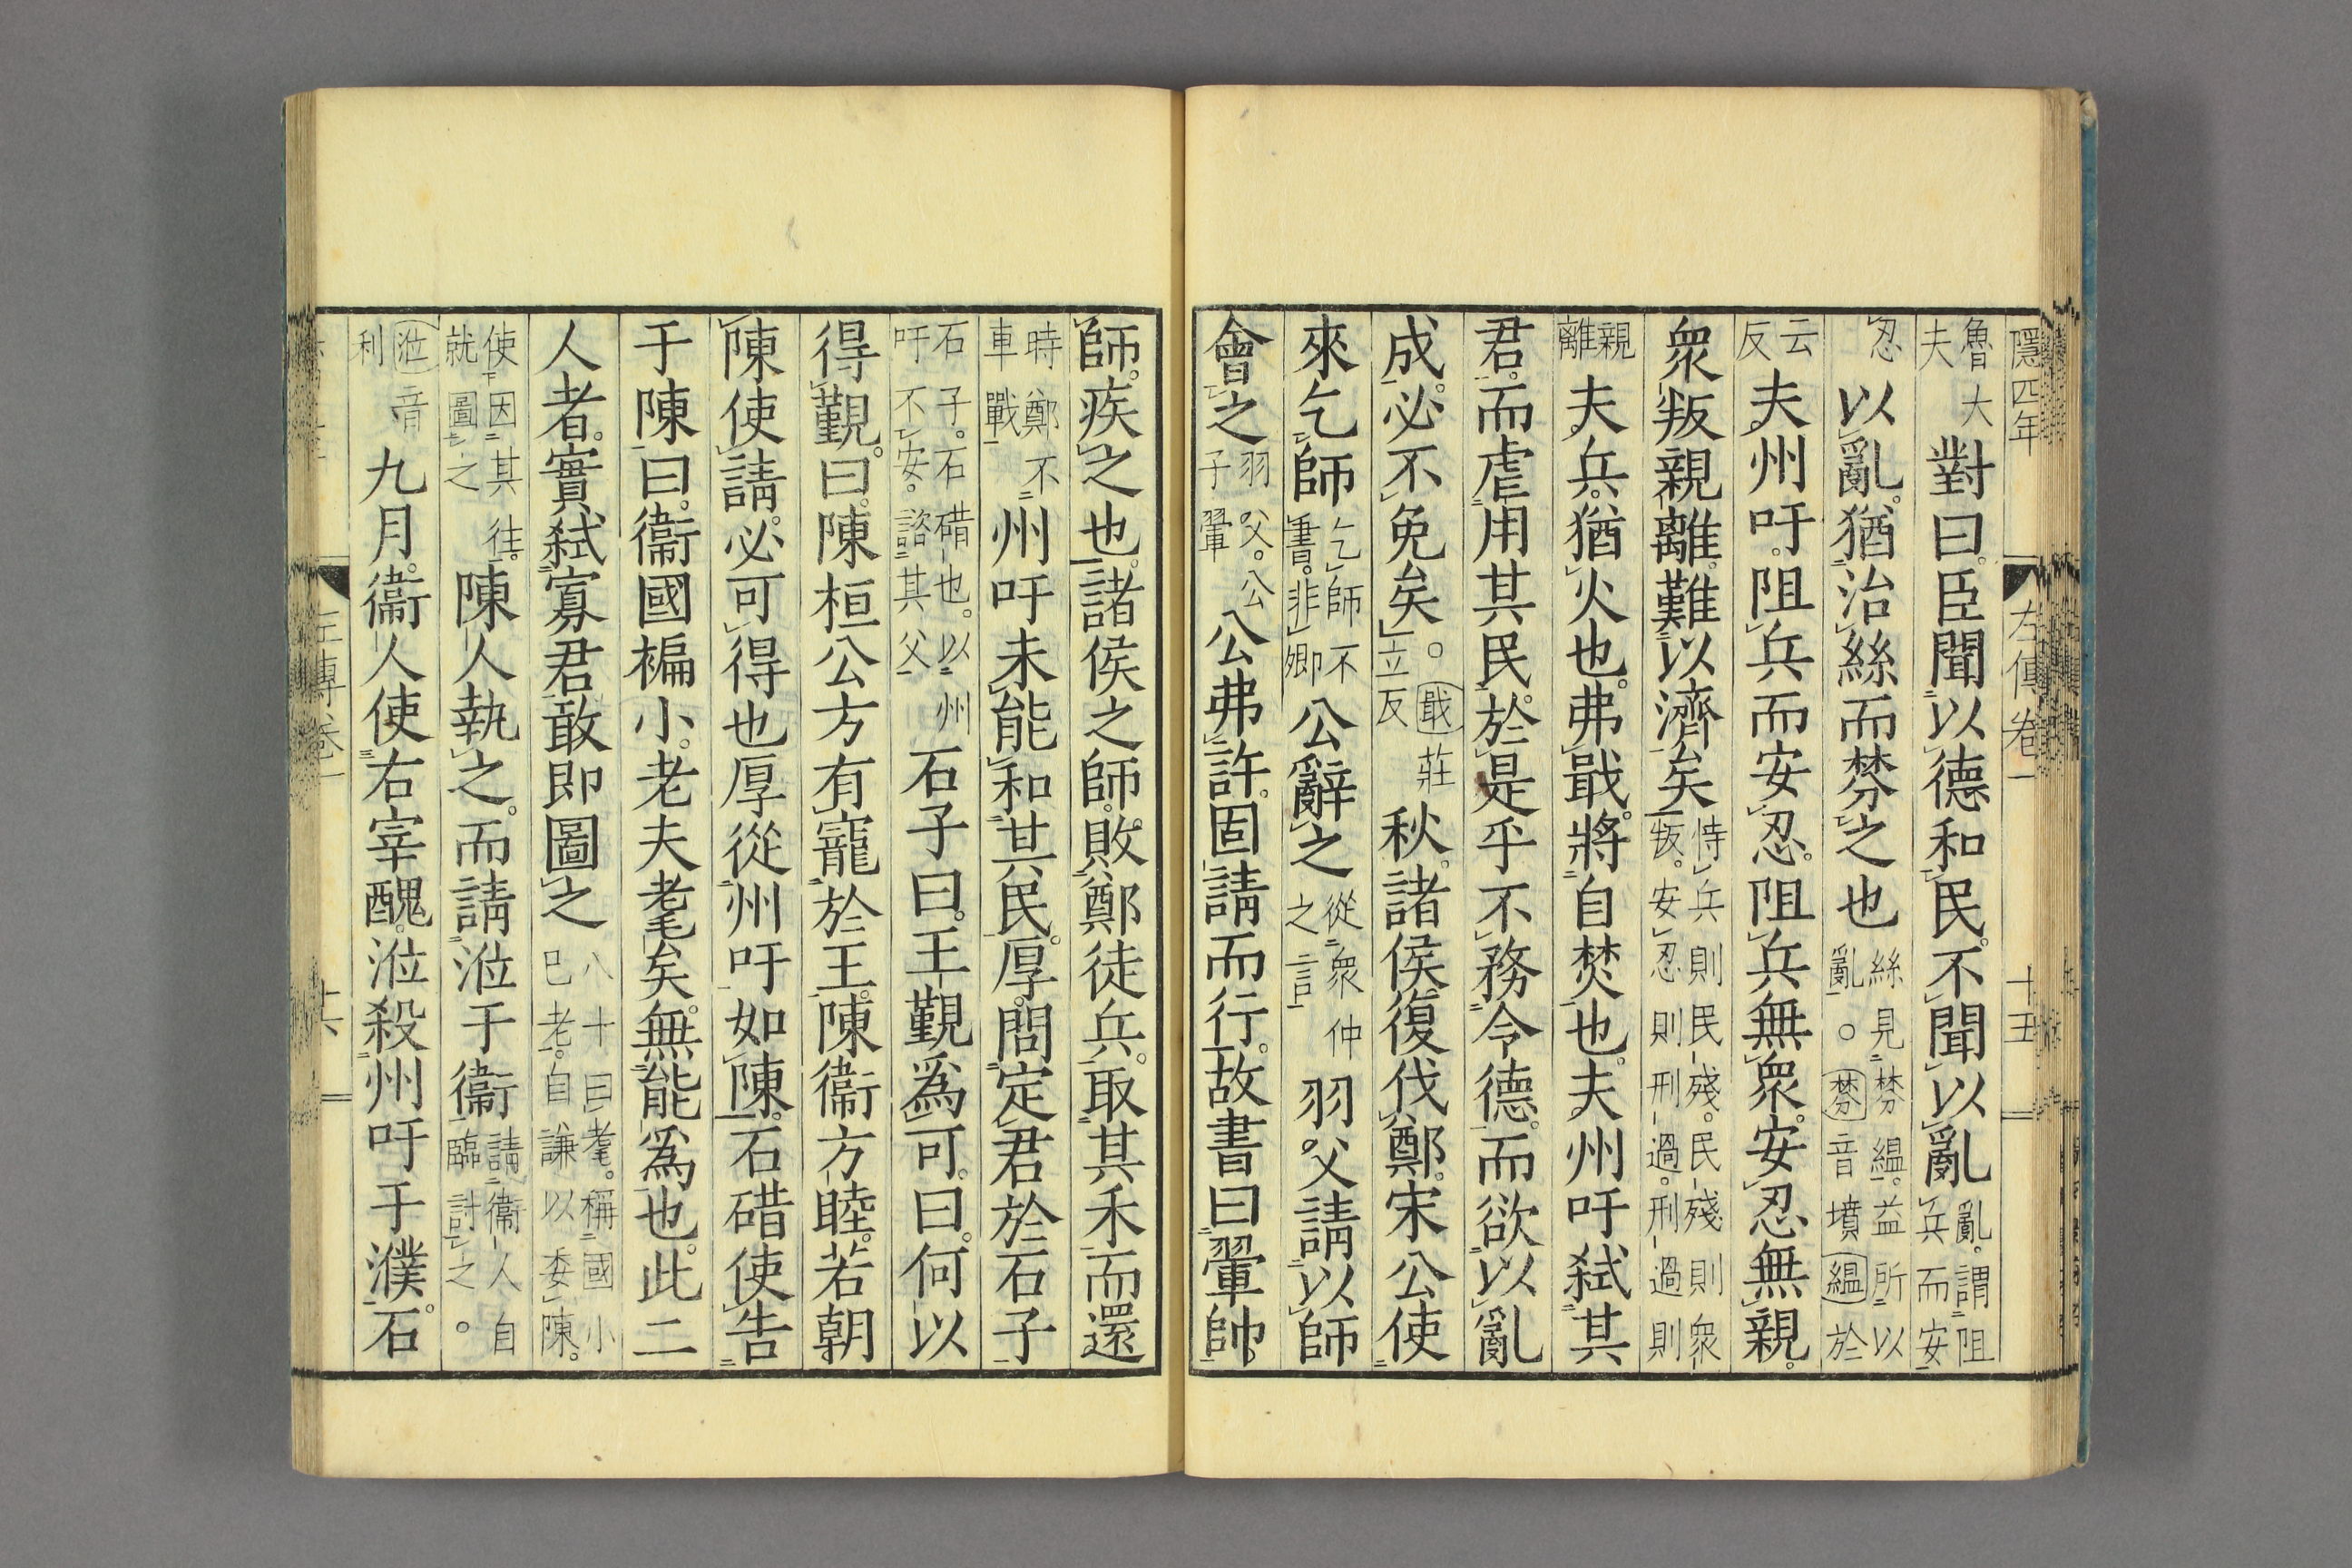 隱四年 左傳卷一 十五
魯大夫對曰。臣聞以德和民。不聞以亂亂。謂阻兵而安
忍以亂。猶治絲而棼之也絲見棼縕。益所以亂。○棼音墳縕於
云反夫州吁。阻兵而安忍。阻兵無衆。安忍無親。
衆叛親離。難以濟矣恃兵則民殘。民殘則衆叛。安忍則刑過。刑過則
親離夫兵。猶火也。弗戢。將自焚也。夫州吁弑其
君。而虐用其民。於是乎不務令德。而欲以亂
成。必不免矣。○戢莊立反秋。諸侯復伐鄭。宋公使
來乞師乞師不書。非卿公辭之從衆仲之言羽父請以師
會之羽父。公子翬公弗許。固請而行。故書曰翬帥
師。疾之也。諸侯之師。敗鄭徒兵。取其禾而還
時鄭不車戰州吁未能和其民。厚問定君於石子
石子。石碏也。以州吁不安。諮其父石子曰。王覲爲可。曰。何以
得覲。曰。陳桓公方有寵於王。陳衞方睦。若朝
陳使請。必可得也厚從州吁如陳。石碏使告
于陳曰。衞國褊小。老夫耄矣。無能爲也。此二
人者。實弑寡君。敢即圖之八十曰耄。稱國小已老。自謙以委陳。
使因其往。就圖之陳人執之。而請涖于衞請衞人自臨討之。○
涖音利九月。衞人使右宰醜。涖殺州吁于濮。石
左傳卷一 十六